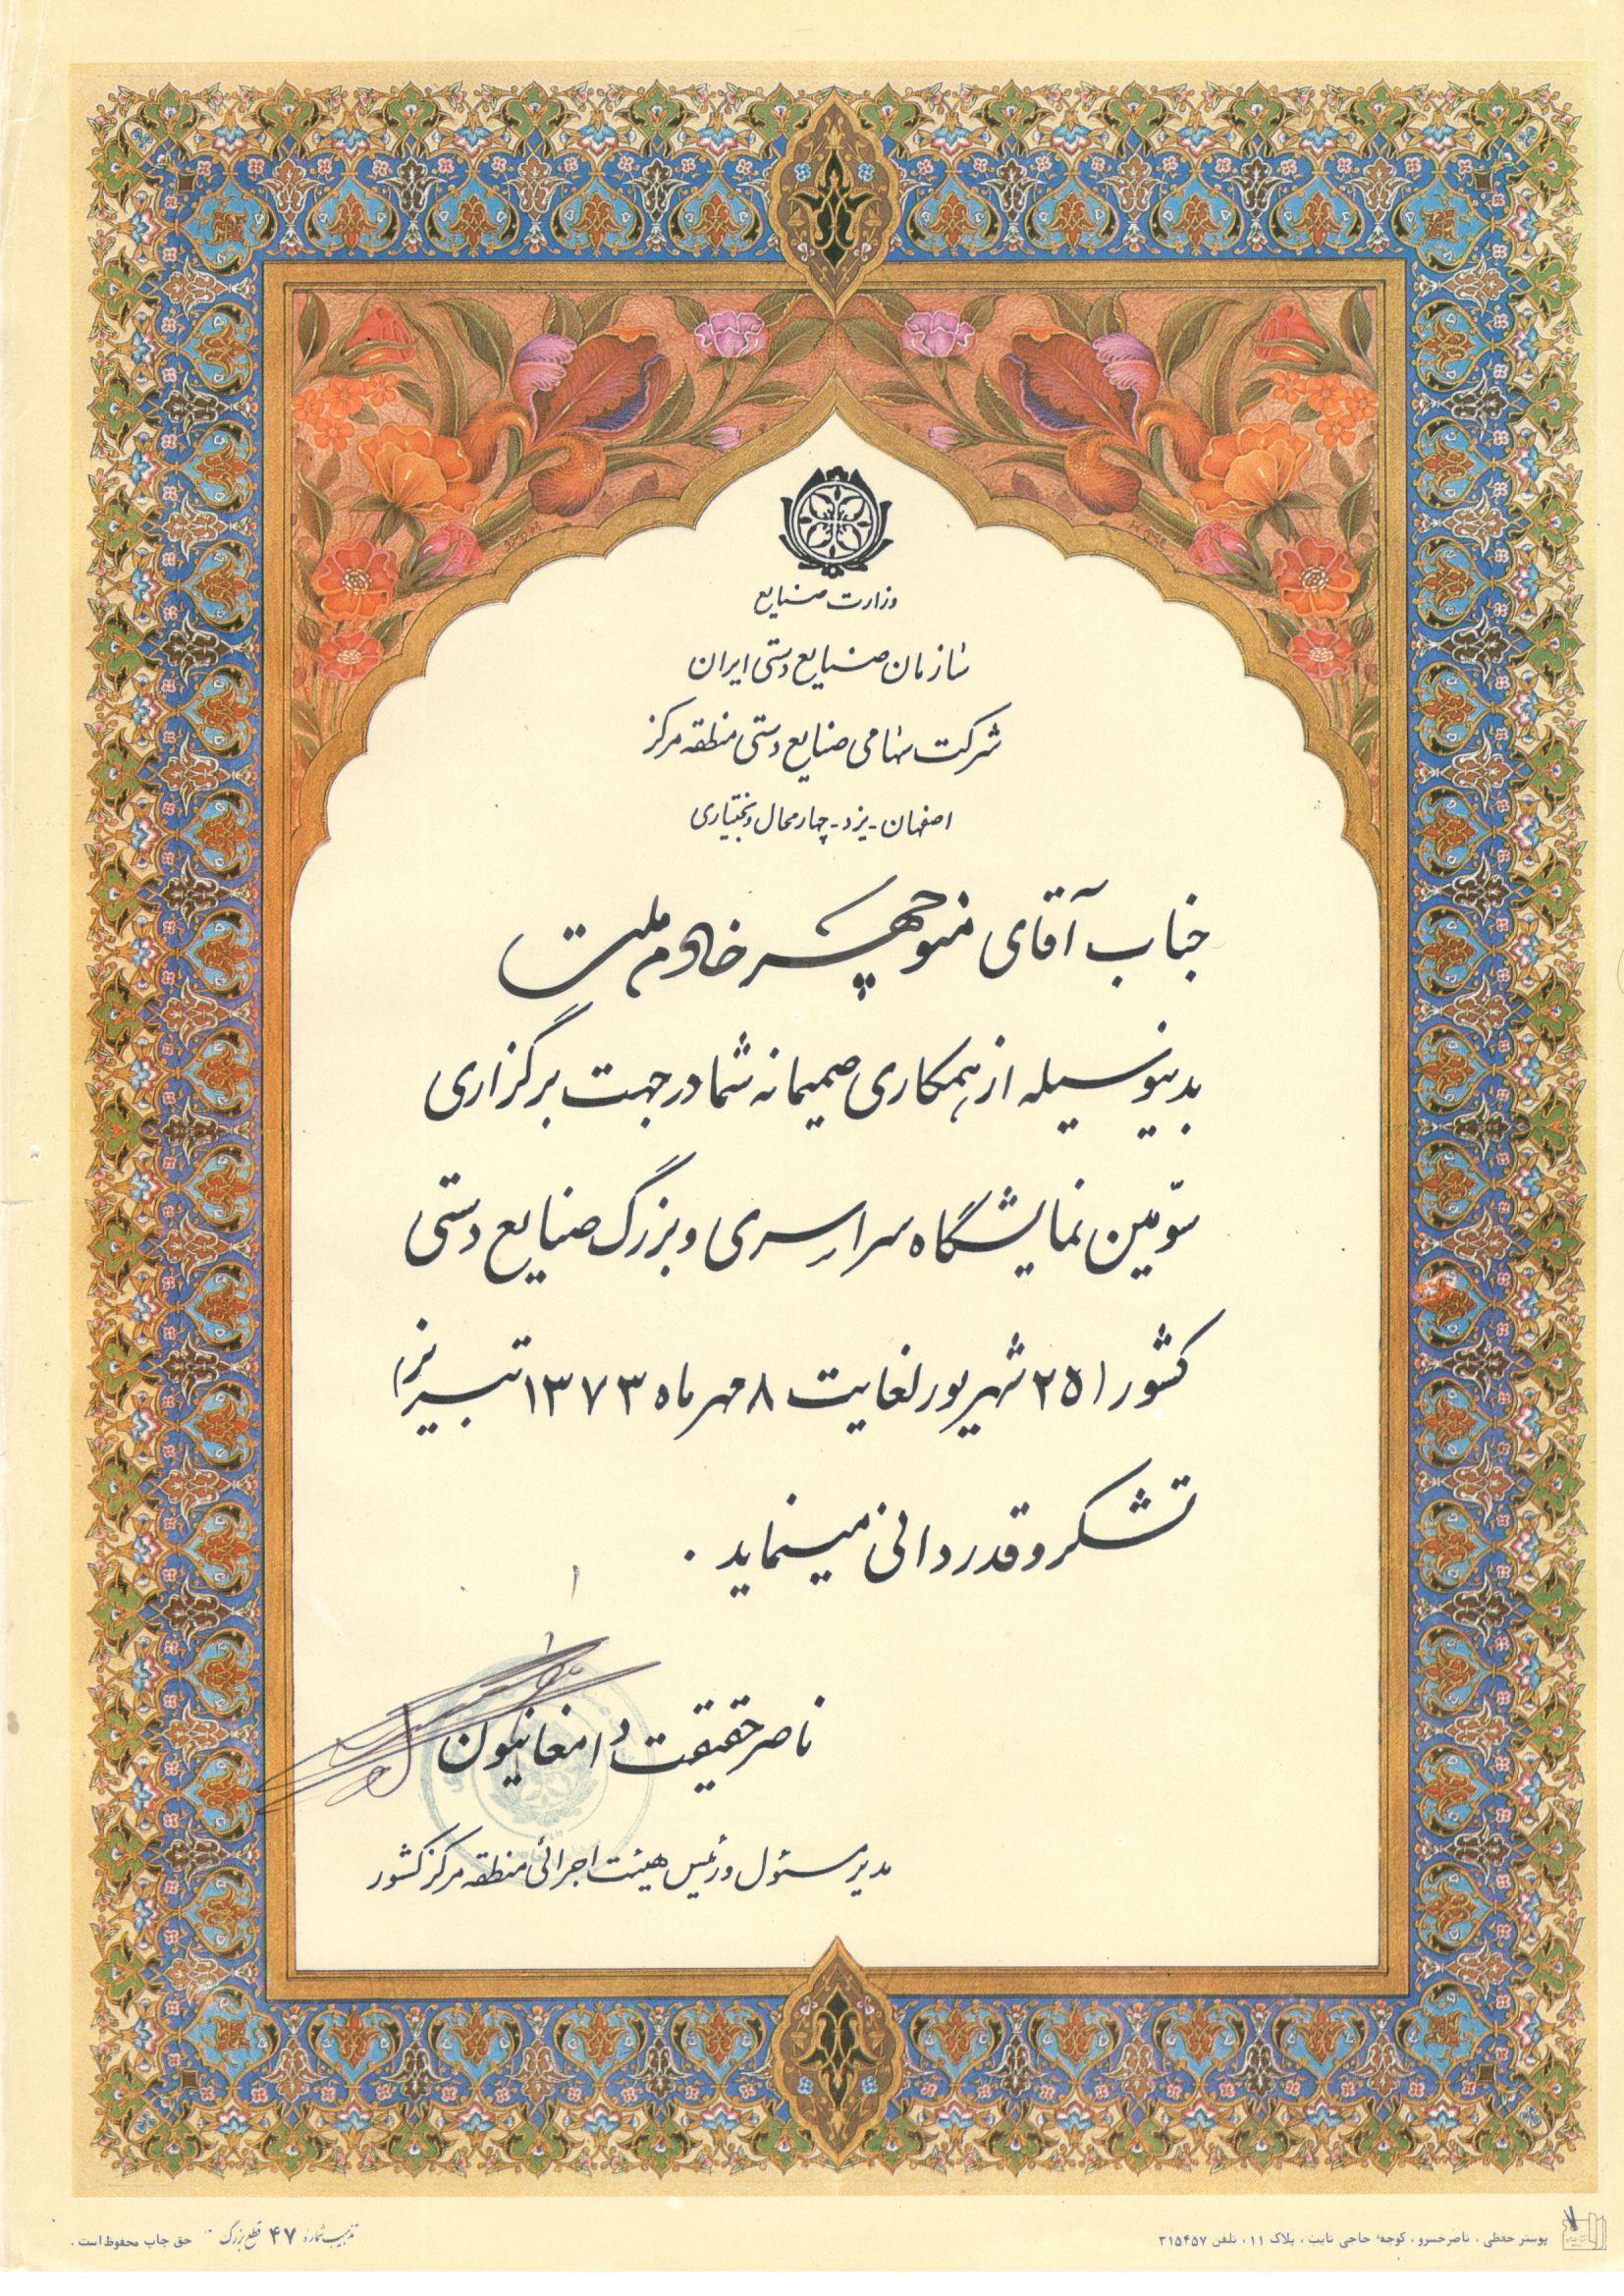 وزارت صنایع
سازمان صنایع دستی ایران
شرکت سهامی صنایع دستی منطقه مرکز
اصفهان - یزد - چهارمحال و بختیاری
جناب آقای منوچهر خادم ملت
بدینوسیله از همکاری صمیمانه شما در جهت برگزاری
سوّمین نمایشگاه سراسری و بزرگ صنایع دستی
کشور (۲۵ شهریور لغایت ۸ مهر ماه ۱۳۷۳ تبریز)
تشکر و قدردانی مینماید .
ناصر حقیقت دامغانیون
مدیر مسئول و رئیس هیئت اجرائی منطقه مرکز کشور
پوستر حفظی ، ناصرخسرو ، کوچهٔ حاجی نایب ، پلاک ۱۱ ، تلفن ۳۱۵۴۵۷
تذهیب شماره ۴۷ قطع بزرگ حق چاپ محفوظ است .